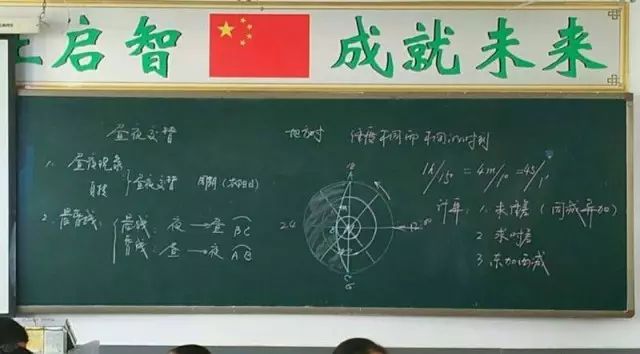 启智 成就未来
昼夜交替
1. 昼夜现象
自转 } 昼夜交替 周期（太阳日）
2. 晨昏线：
晨线：夜→昼 BC
昏线：昼→夜 AB
二地方时 经度不同而不同的时刻
1h/15° = 4m/1° = 4s/1'
计算：1. 求经度差（同减异加）
2. 求时差
3. 东加西减
24
B
12
0°